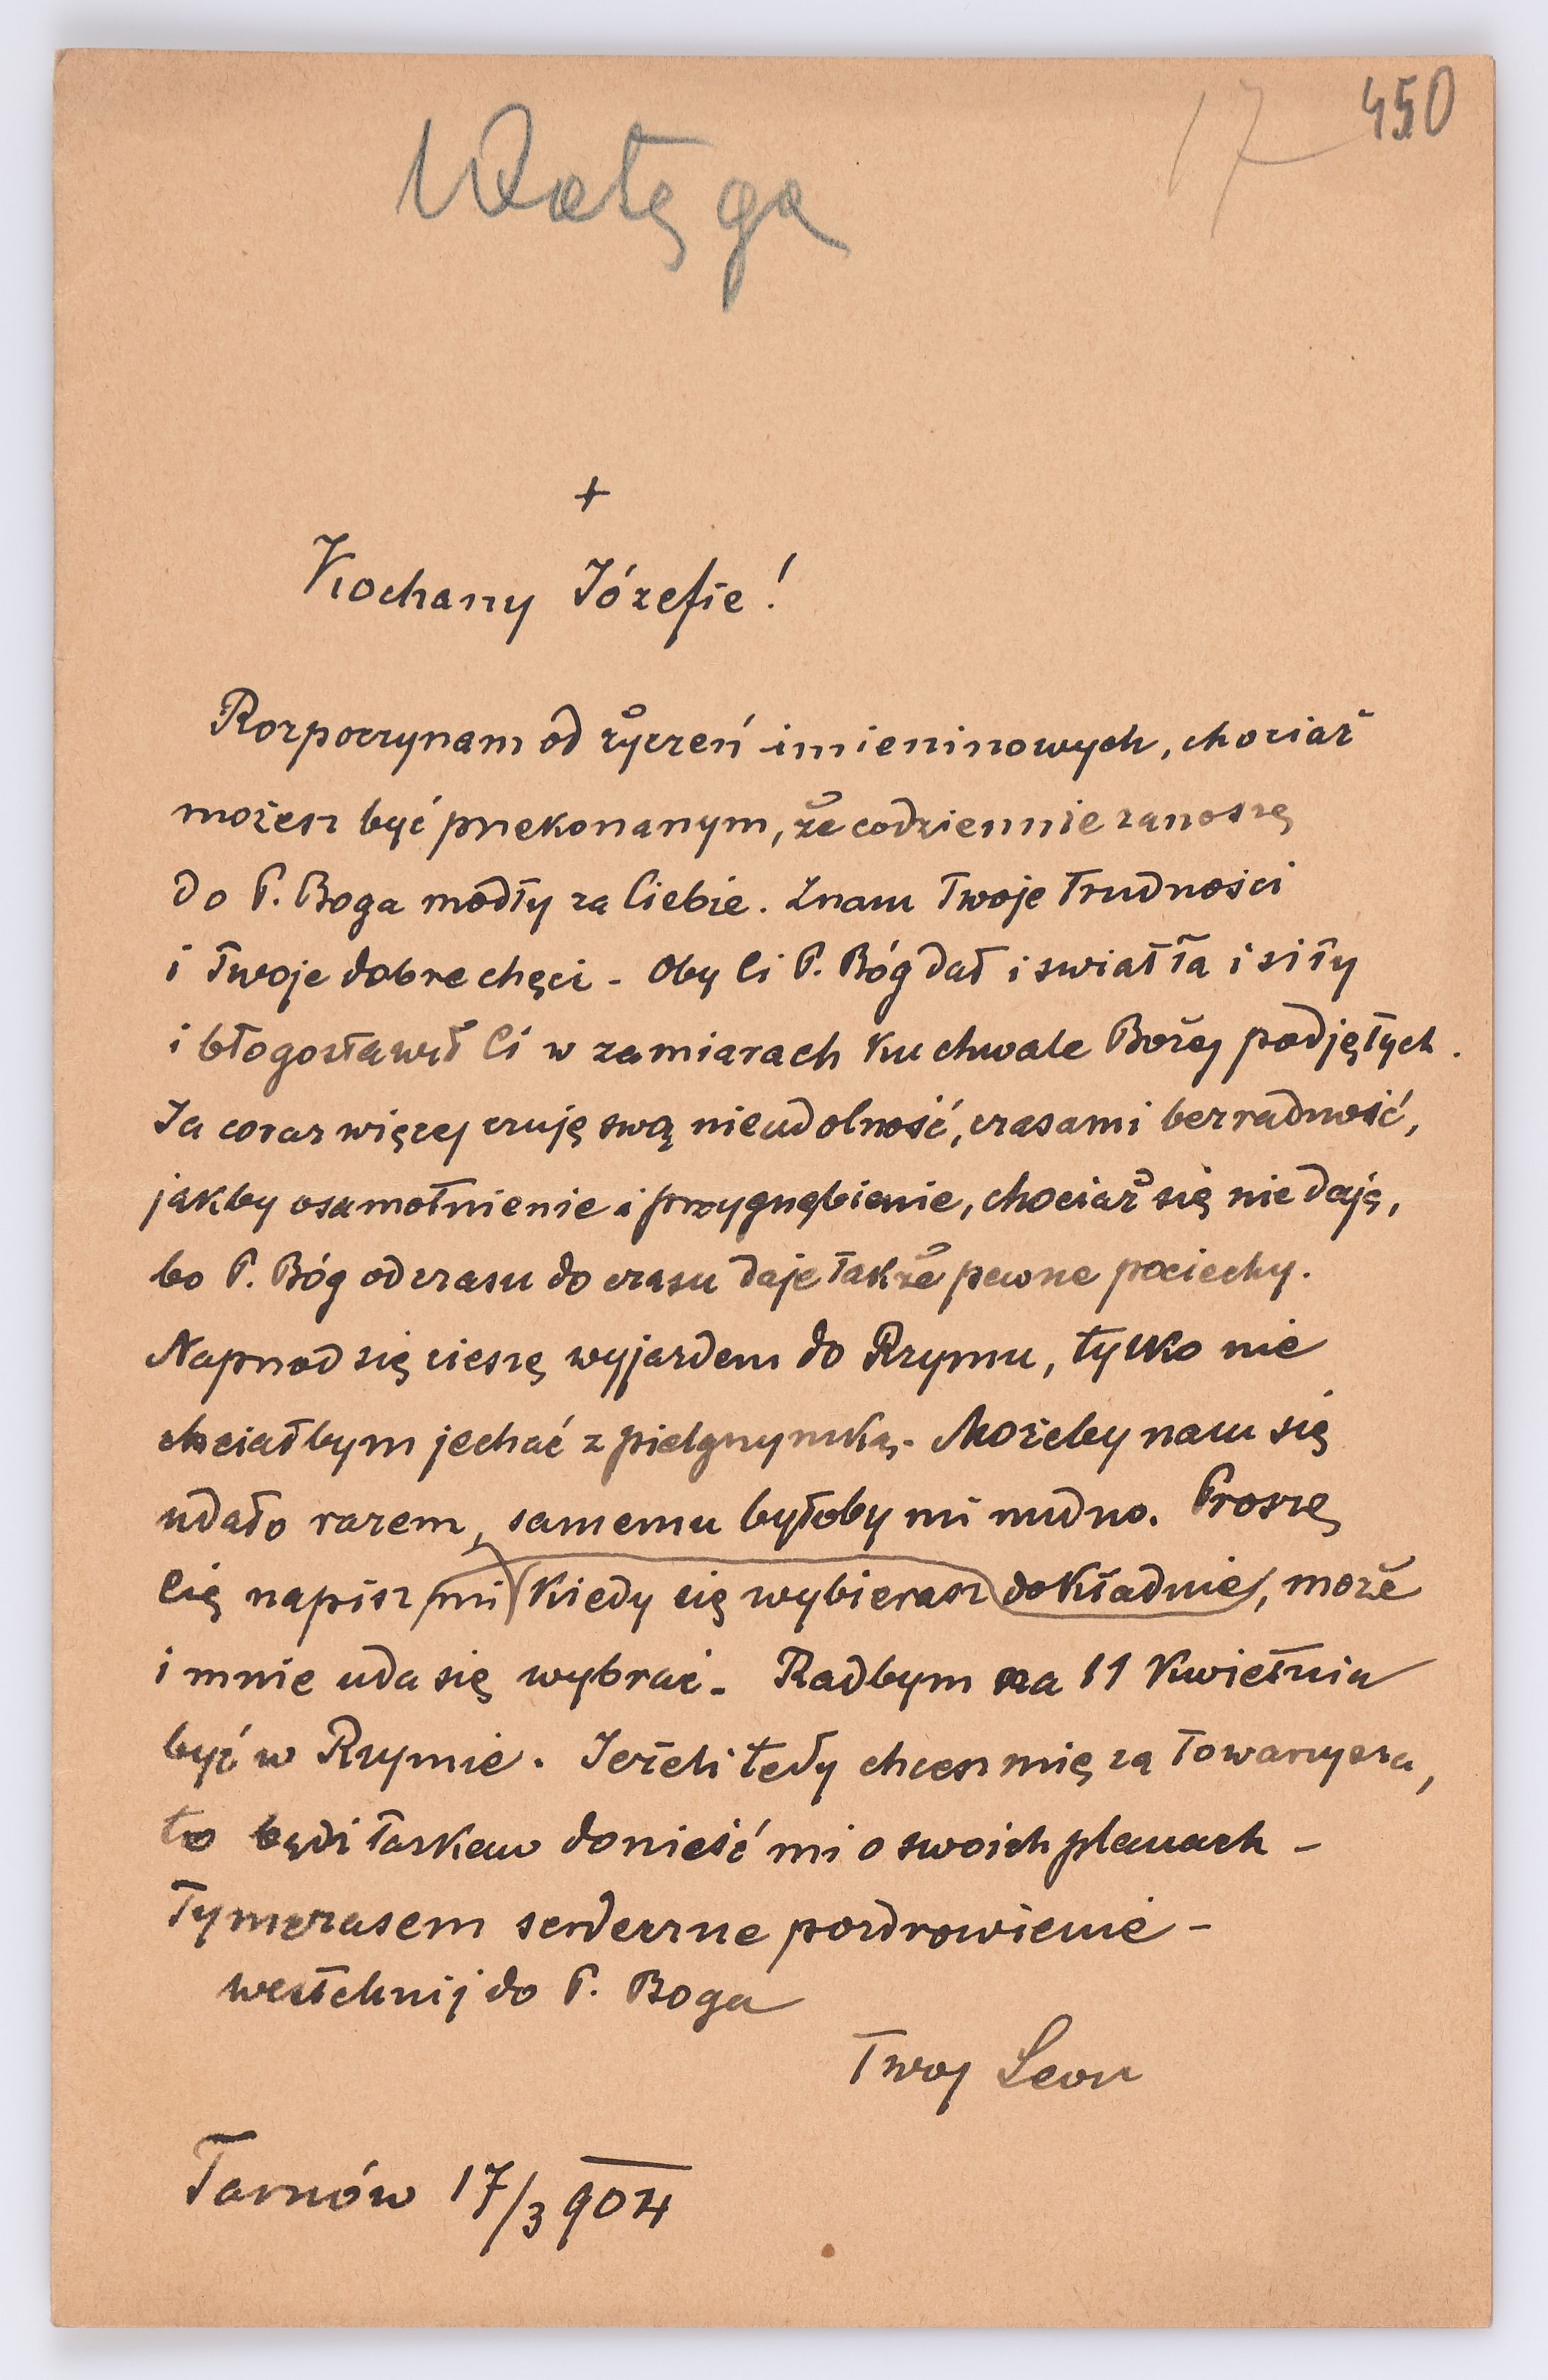 17 450
Wałęga
+
Kochany Józefie!
Rozpoczynam od życzeń imieninowych, chociaż
możesz być przekonanym, że codziennie zanoszę
do P. Boga modły za Ciebie. Znam Twoje trudności
i Twoje dobre chęci - Oby Ci P. Bóg dał i swiatła i siły
i błogosławił Ci w zamiarach ku chwale Bożej podjętych.
Ja coraz więcej czuję swą nieudolność, czasami bezradność,
jakby osamotnienie i przygnębienie, chociaż się nie daję,
bo P. Bóg od czasu do czasu daje także pewne pociechy.
Naprzod się cieszę wyjazdem do Rzymu, tylko nie
chciałbym jechać z pielgrzymką. Możeby nam się
udało razem, samemu byłoby mi nudno. Proszę
Cię napisz mi kiedy się wybierasz dokładnie, może
i mnie uda się wybrać. Radbym na 11 Kwietnia
być w Rzymie. Jeżeli tedy chcesz mię za towarzysza,
to bądź łaskaw donieść mi o swoich planach -
Tymczasem serdeczne pozdrowienie -
westchnij do P. Boga
Twoj Leon
Tarnów 17/3 904